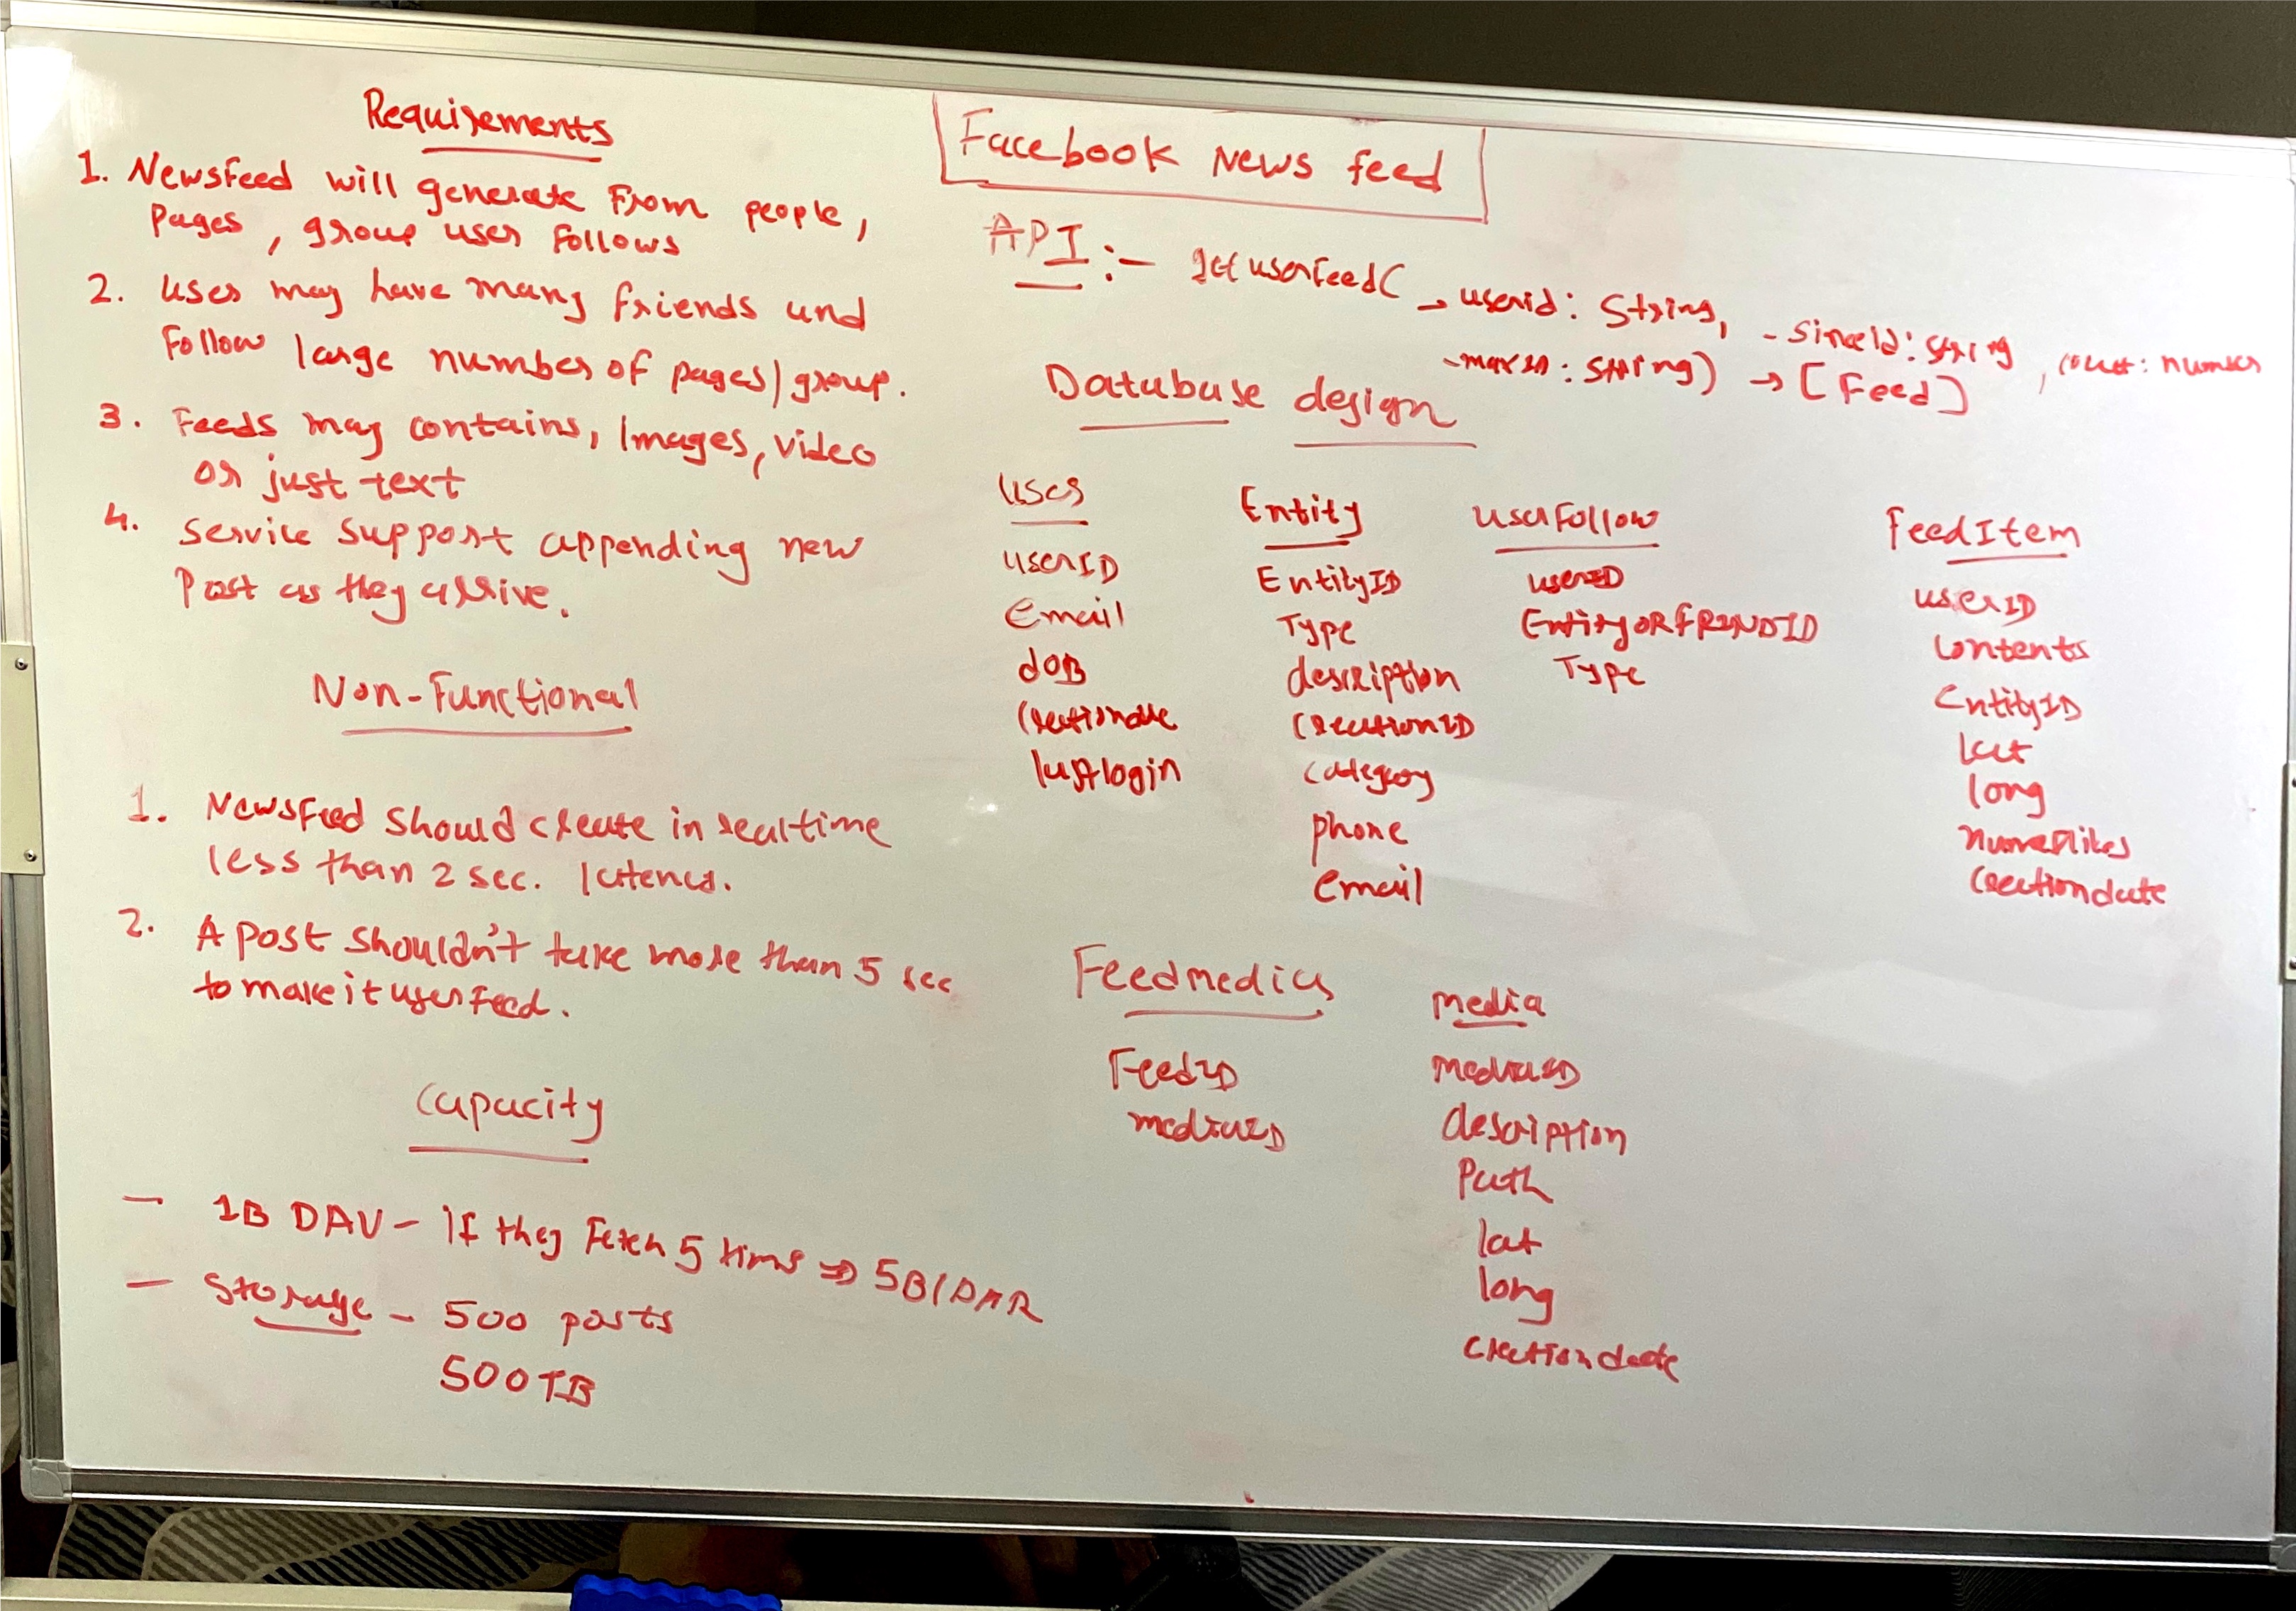 Requirements
1. Newsfeed will generate From people,
Pages, group user Follows
2. User may have many friends and
Follow large number of pages/group.
3. Feeds may contains, Images, video
or just text
4. Service support appending new
Post as they arrive.
Non-Functional
1. Newsfeed should create in realtime
less than 2 sec. latency.
2. A post shouldn't take more than 5 sec
to make it user feed.
Capacity
— 1B DAU - If they Fetch 5 times ⇒ 5B/
— Storage - 500 posts
500TB
Facebook News feed
API :- getuserFeed( - userid: String, - sinceId: string, count: number
- maxID: string) → [Feed]
Database design
User
userID
email
dOB
creationdate
lastlogin
Entity
EntityID
Type
description
creationID
category
phone
email
userFollow
userID
EntityORFRINDID
Type
FeedItem
userID
contents
EntityID
lat
long
creationdate
Feedmedia
FeedID
mediaID
media
mediaID
description
Path
lat
long
creationdate